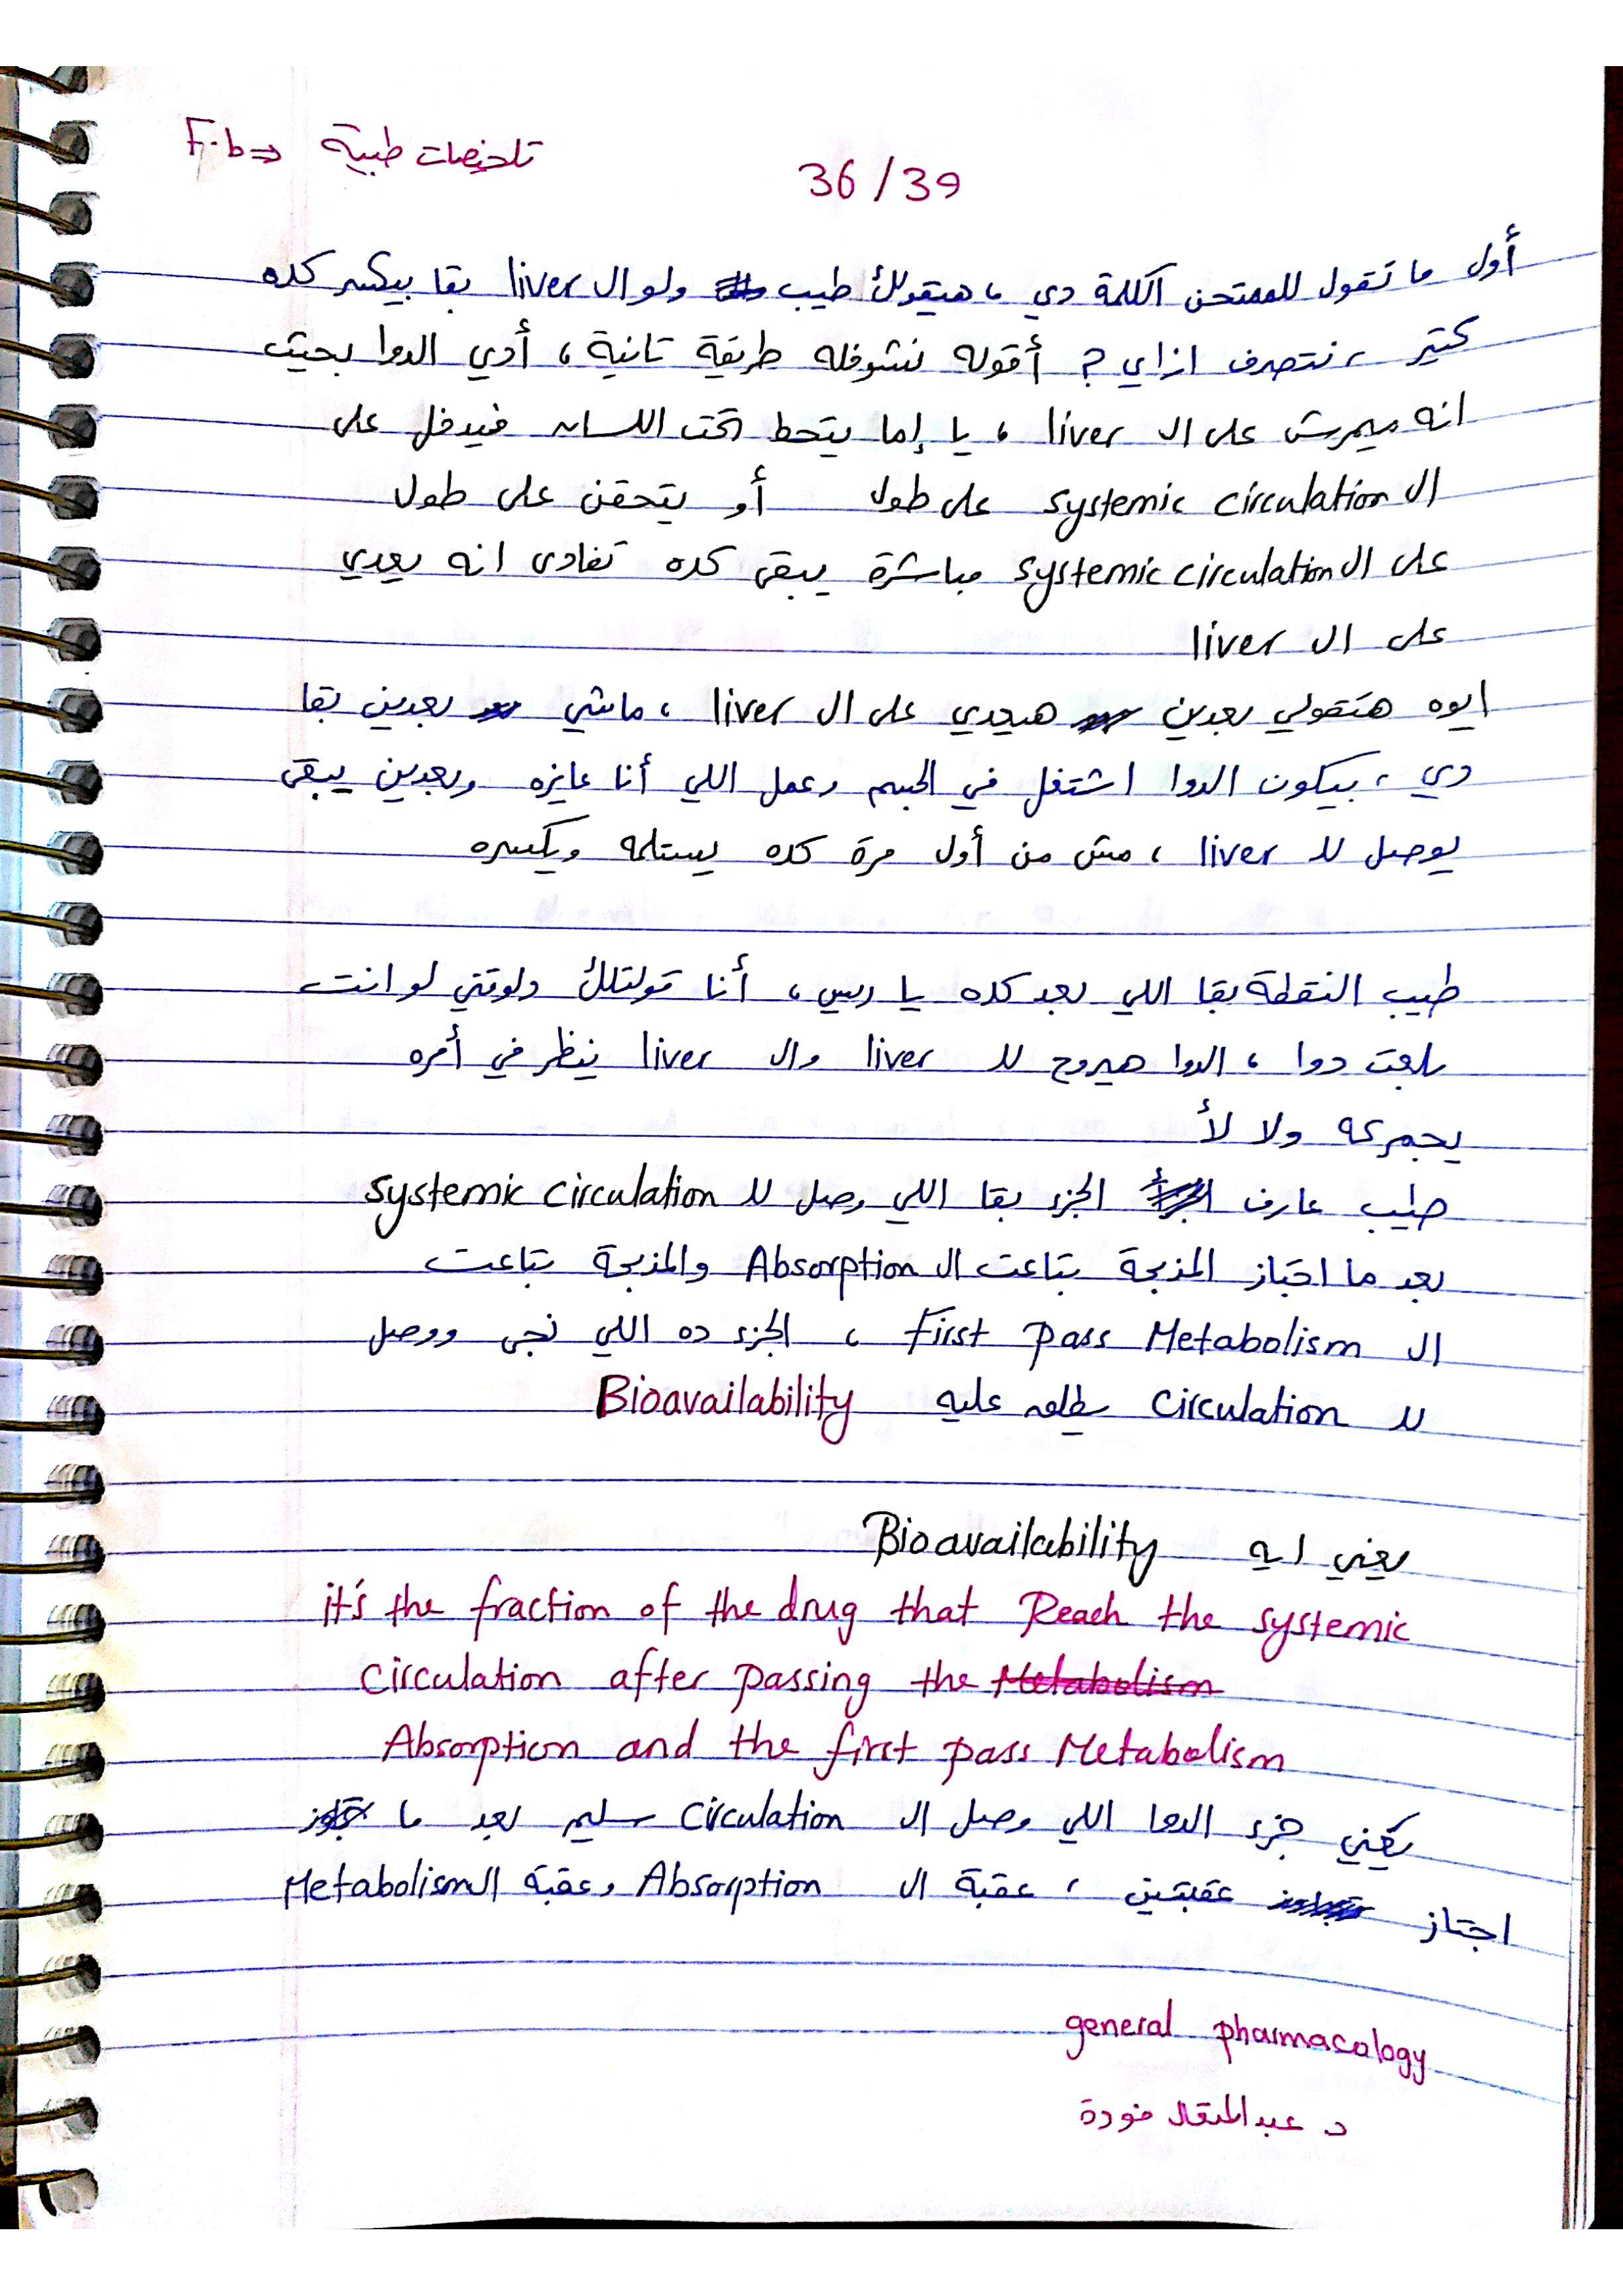 F.b ⇒ تلخيصات طبية
36/39
أول ما تقول للممتحن الكلمة دي ، هيقولك طيب ولو ال liver بقا بيكسر كده
كتير ، نتصرف ازاي ? أقوله نشوفله طريقة تانية ، أدي الدوا بحيث
انه ميمرش على ال liver ، يا إما يتحط تحت اللسان فيدخل على
ال systemic circulation على طول أو يتحقن على طول
على ال systemic circulation مباشرة يبقى كده تفادى انه يعدي
على ال liver
ايوه هتقولي بعدين هيعدي على ال liver ، ماشي بعدين بقا
دي ، بيكون الدوا اشتغل في الجسم وعمل اللي أنا عايزه وبعدين يبقى
يوصل لل liver ، مش من أول مرة كده يستلمه ويكسره
طيب النقطة بقا اللي بعد كده يا ريس ، أنا قولتلك دلوقتي لو انت
بلعت دوا ، الدوا هيروح لل liver وال liver ينظر في أمره
يجمركه ولا لأ
طيب عارف الجزء بقا اللي وصل لل systemic circulation
بعد ما اجتاز المذبحة بتاعت ال Absorption والمذبحة بتاعت
ال First pass Metabolism ، الجزء ده اللي نجى ووصل
لل circulation يطلق عليه Bioavailability
يعني ايه Bioavailability
it's the fraction of the drug that Reach the systemic
circulation after passing the Metabolism
Absorption and the first pass Metabolism
يعني جزء الدوا اللي وصل ال circulation سليم بعد ما
اجتاز عقبتين ، عقبة ال Absorption وعقبة ال Metabolism
general pharmacology
د. عبدالمتعال فودة